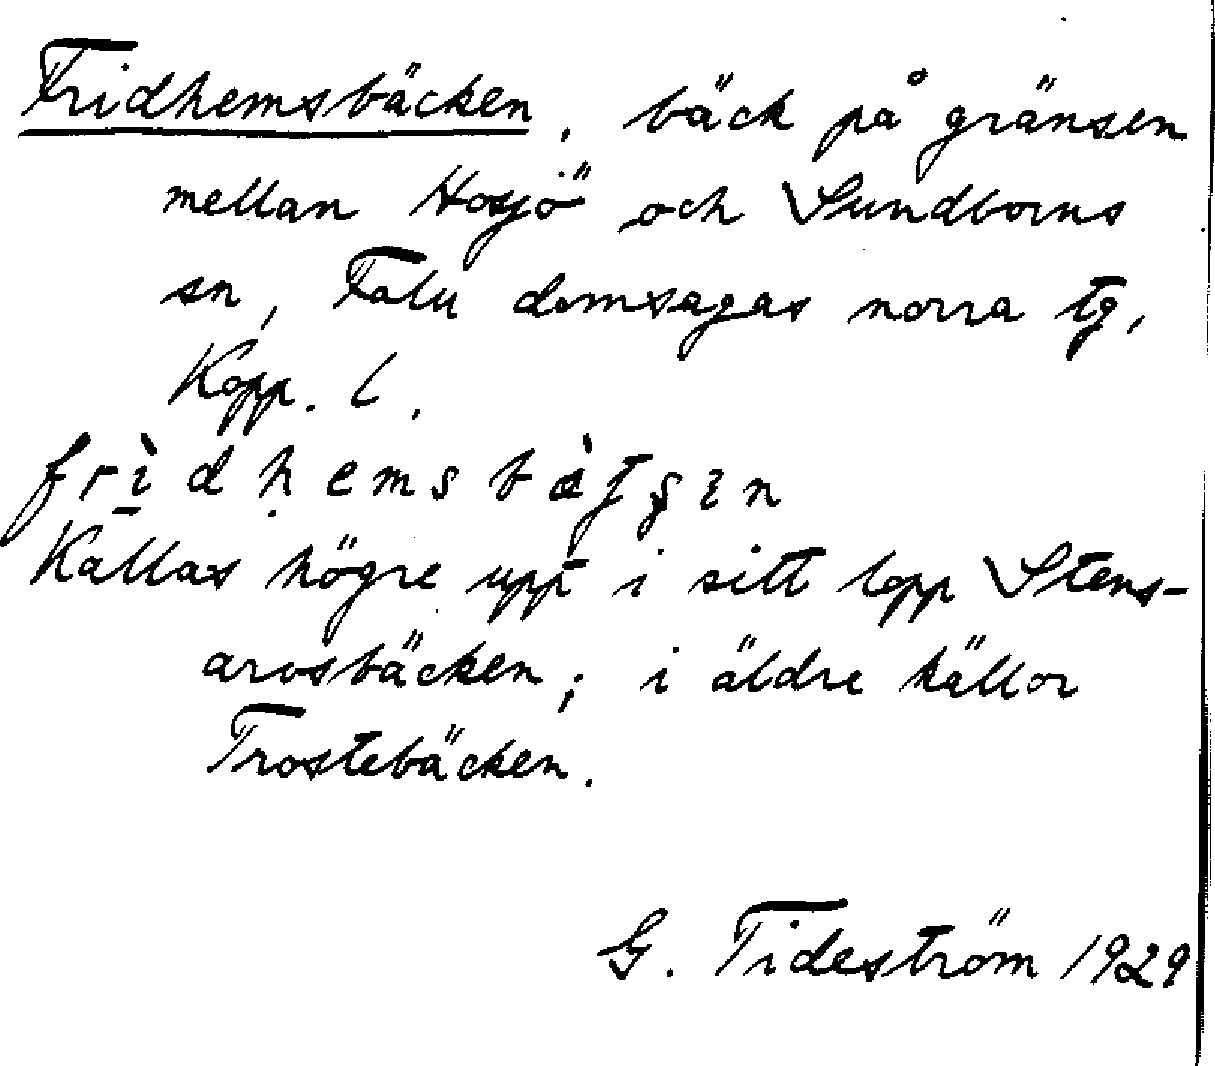 Fridhemsbäcken, bäck på gränsen
mellan Hosjö och Sundborns
sn, Falu domsagas norra tg,
Kopp. l.
Kallas högre upp i sitt lopp Stens-
arvsbäcken; i äldre källor
Trostebäcken.
G. Tideström 1929